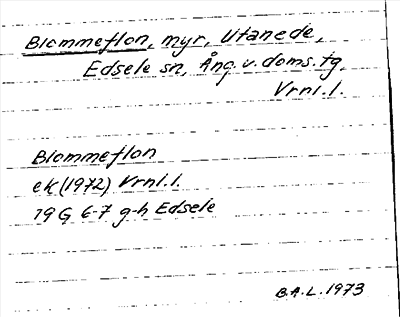 Blommeflon, myr, Utanede,
Edsele sn, Ång. v. doms. tg
Vrnl. l.
Blommeflon
ek (1972) Vrnl. l.
19 G 6-7 g-h Edsele
B.A.L. 1973